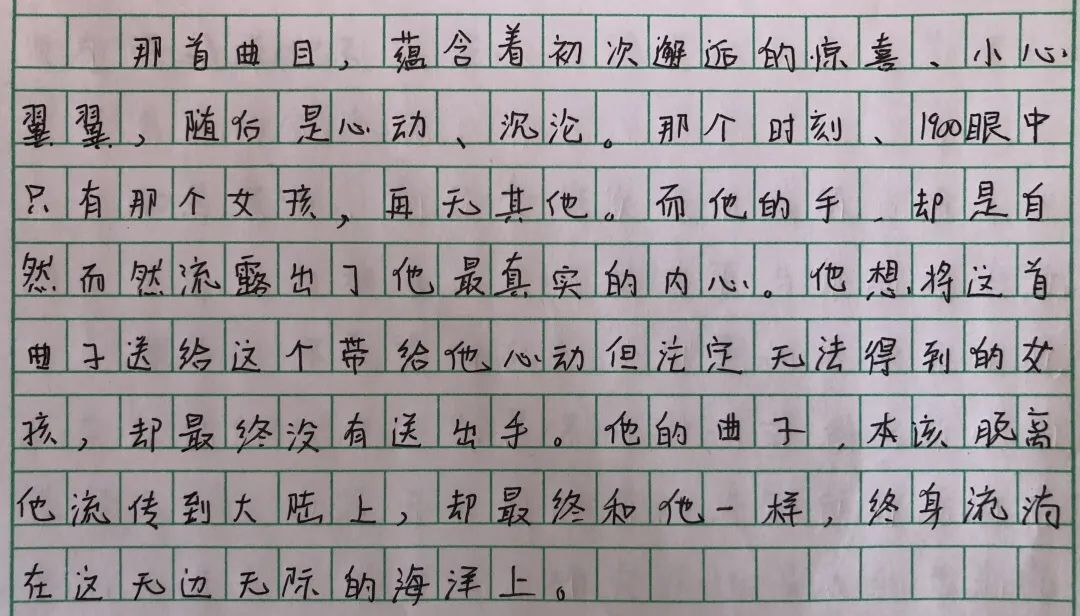 那首曲目，蕴含着初次邂逅的惊喜、小心
翼翼，随后是心动、沉沦。那个时刻、1900眼中
只有那个女孩，再无其他。而他的手，却是自
然而然流露出了他最真实的内心。他想将这首
曲子送给这个带给他心动但注定无法得到的女
孩，却最终没有送出手。他的曲子，本该脱离
他流传到大陆上，却最终和他一样，终身流淌
在这无边无际的海洋上。